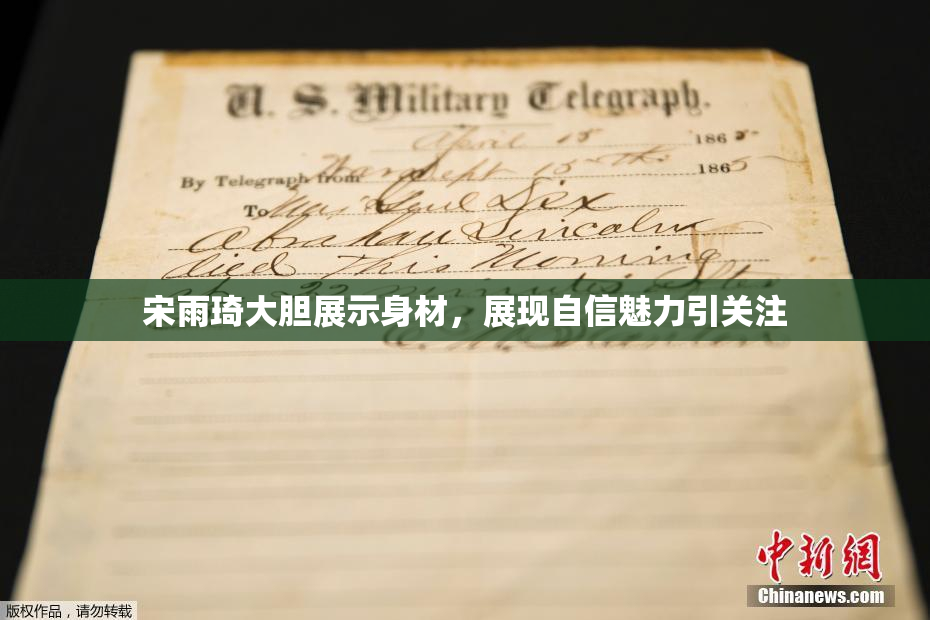 U. S. Military Telegraph.
April 15 1865
By Telegraph from War Dept 15th 1865
To Maj Genl Dix
Abraham Lincoln
died This Morning
22 minutes after
宋雨琦大胆展示身材，展现自信魅力引关注
中新網
Chinanews.com
版权作品，请勿转载